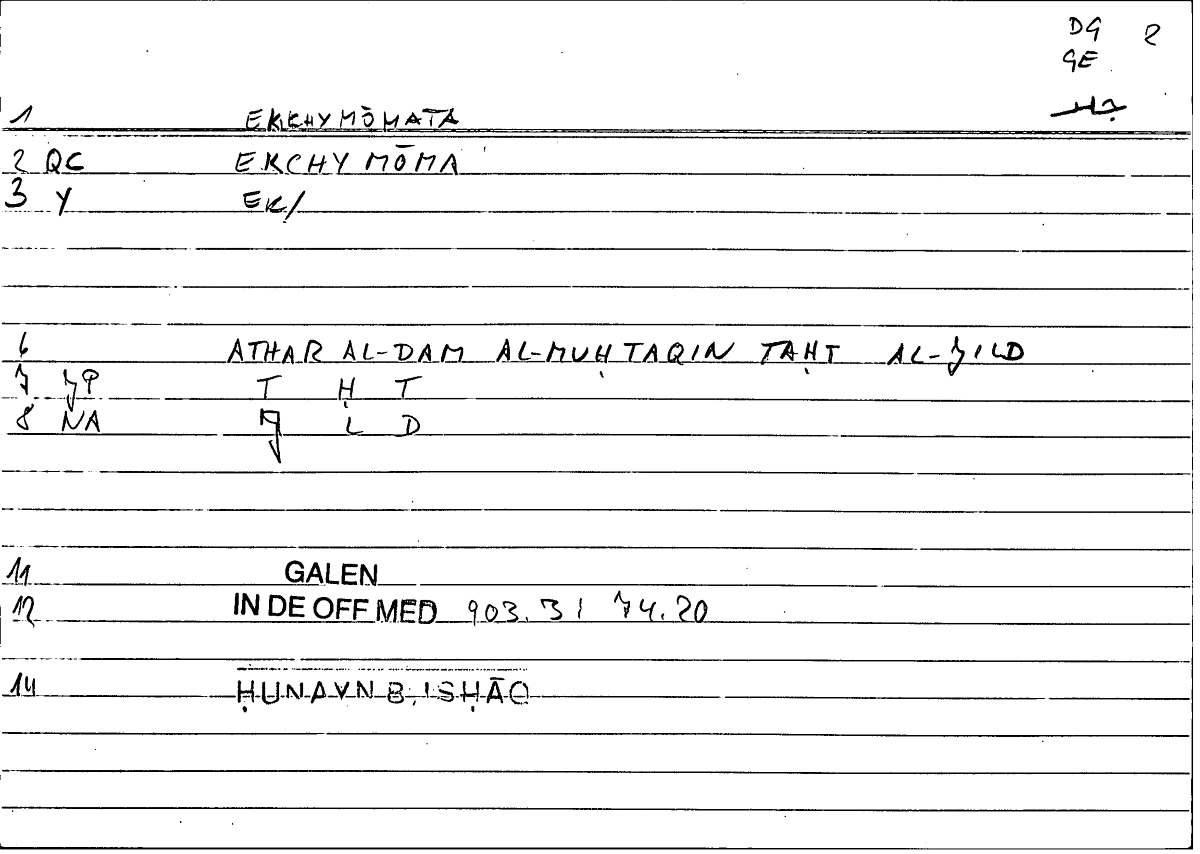 DG 2
GE
جلد
1 EKKHYMŌMATA
2 QC EKCHYMŌMA
3 Y EK/
6 ATHAR AL-DAM AL-MUḤTAQIN TAḤT AL-JILD
7 JP T Ḥ T
8 NA J L D
11 GALEN
12 IN DE OFF MED 903.31 74.20
14 ḤUNAYN B. ISḤĀQ